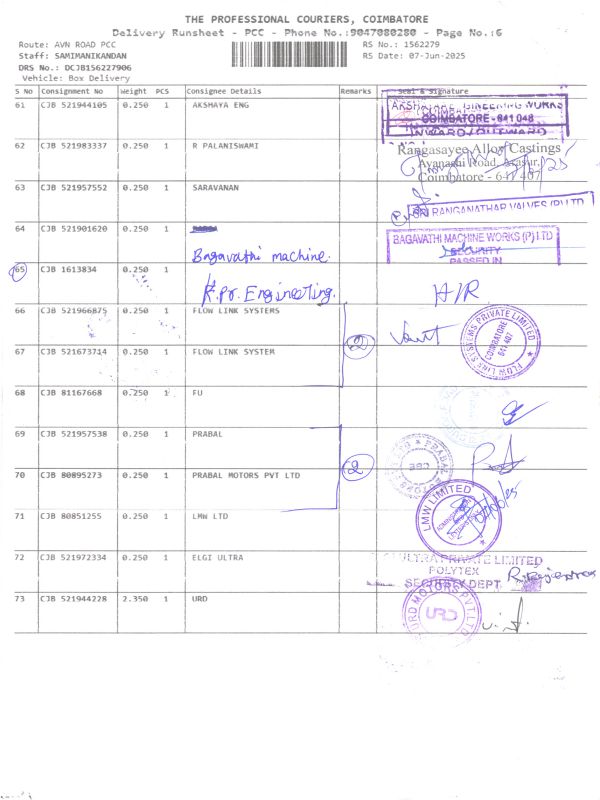 THE PROFESSIONAL COURIERS, COIMBATORE
Delivery Runsheet - PCC - Phone No.:9047080280 - Page No.:6
Route: AVN ROAD PCC
RS No.: 1562279
Staff: SAMIMANIKANDAN
RS Date: 07-Jun-2025
DRS No.: DCJB156227906
Vehicle: Box Delivery
S No Consignment No Weight PCS Consignee Details Remarks Seal & Signature
61 CJB 521944105 0.250 1 AKSMAYA ENG
COIMBATORE - 641 048
INWARD/OUTWARD
62 CJB 521983337 0.250 1 R PALANISWAMI
Rangasayee Alloy Castings
Coimbatore - 641 407
63 CJB 521957552 0.250 1 SARAVANAN
SRI RANGANATHAR VALVES (P) LTD
64 CJB 521901620 0.250 1
Bagavathi machine.
BAGAVATHI MACHINE WORKS (P) LTD
SECURITY
PASSED IN
65 CJB 1613834 0.250 1
K.Pr. Engineeting.
66 CJB 521966875 0.250 1 FLOW LINK SYSTEMS
2
FLOW LINK SYSTEMS PRIVATE LIMITED
COIMBATORE
641 407
67 CJB 521673714 0.250 1 FLOW LINK SYSTEM
68 CJB 81167668 0.250 1 FU
69 CJB 521957538 0.250 1 PRABAL
2
70 CJB 80895273 0.250 1 PRABAL MOTORS PVT LTD
71 CJB 80851255 0.250 1 LMW LTD
LMW LIMITED
72 CJB 521972334 0.250 1 ELGI ULTRA
ULTRA PRIVATE LIMITED
POLYTEX
SECURITY DEPT.
73 CJB 521944228 2.350 1 URD
URD MOTORS PVT. LTD
URD